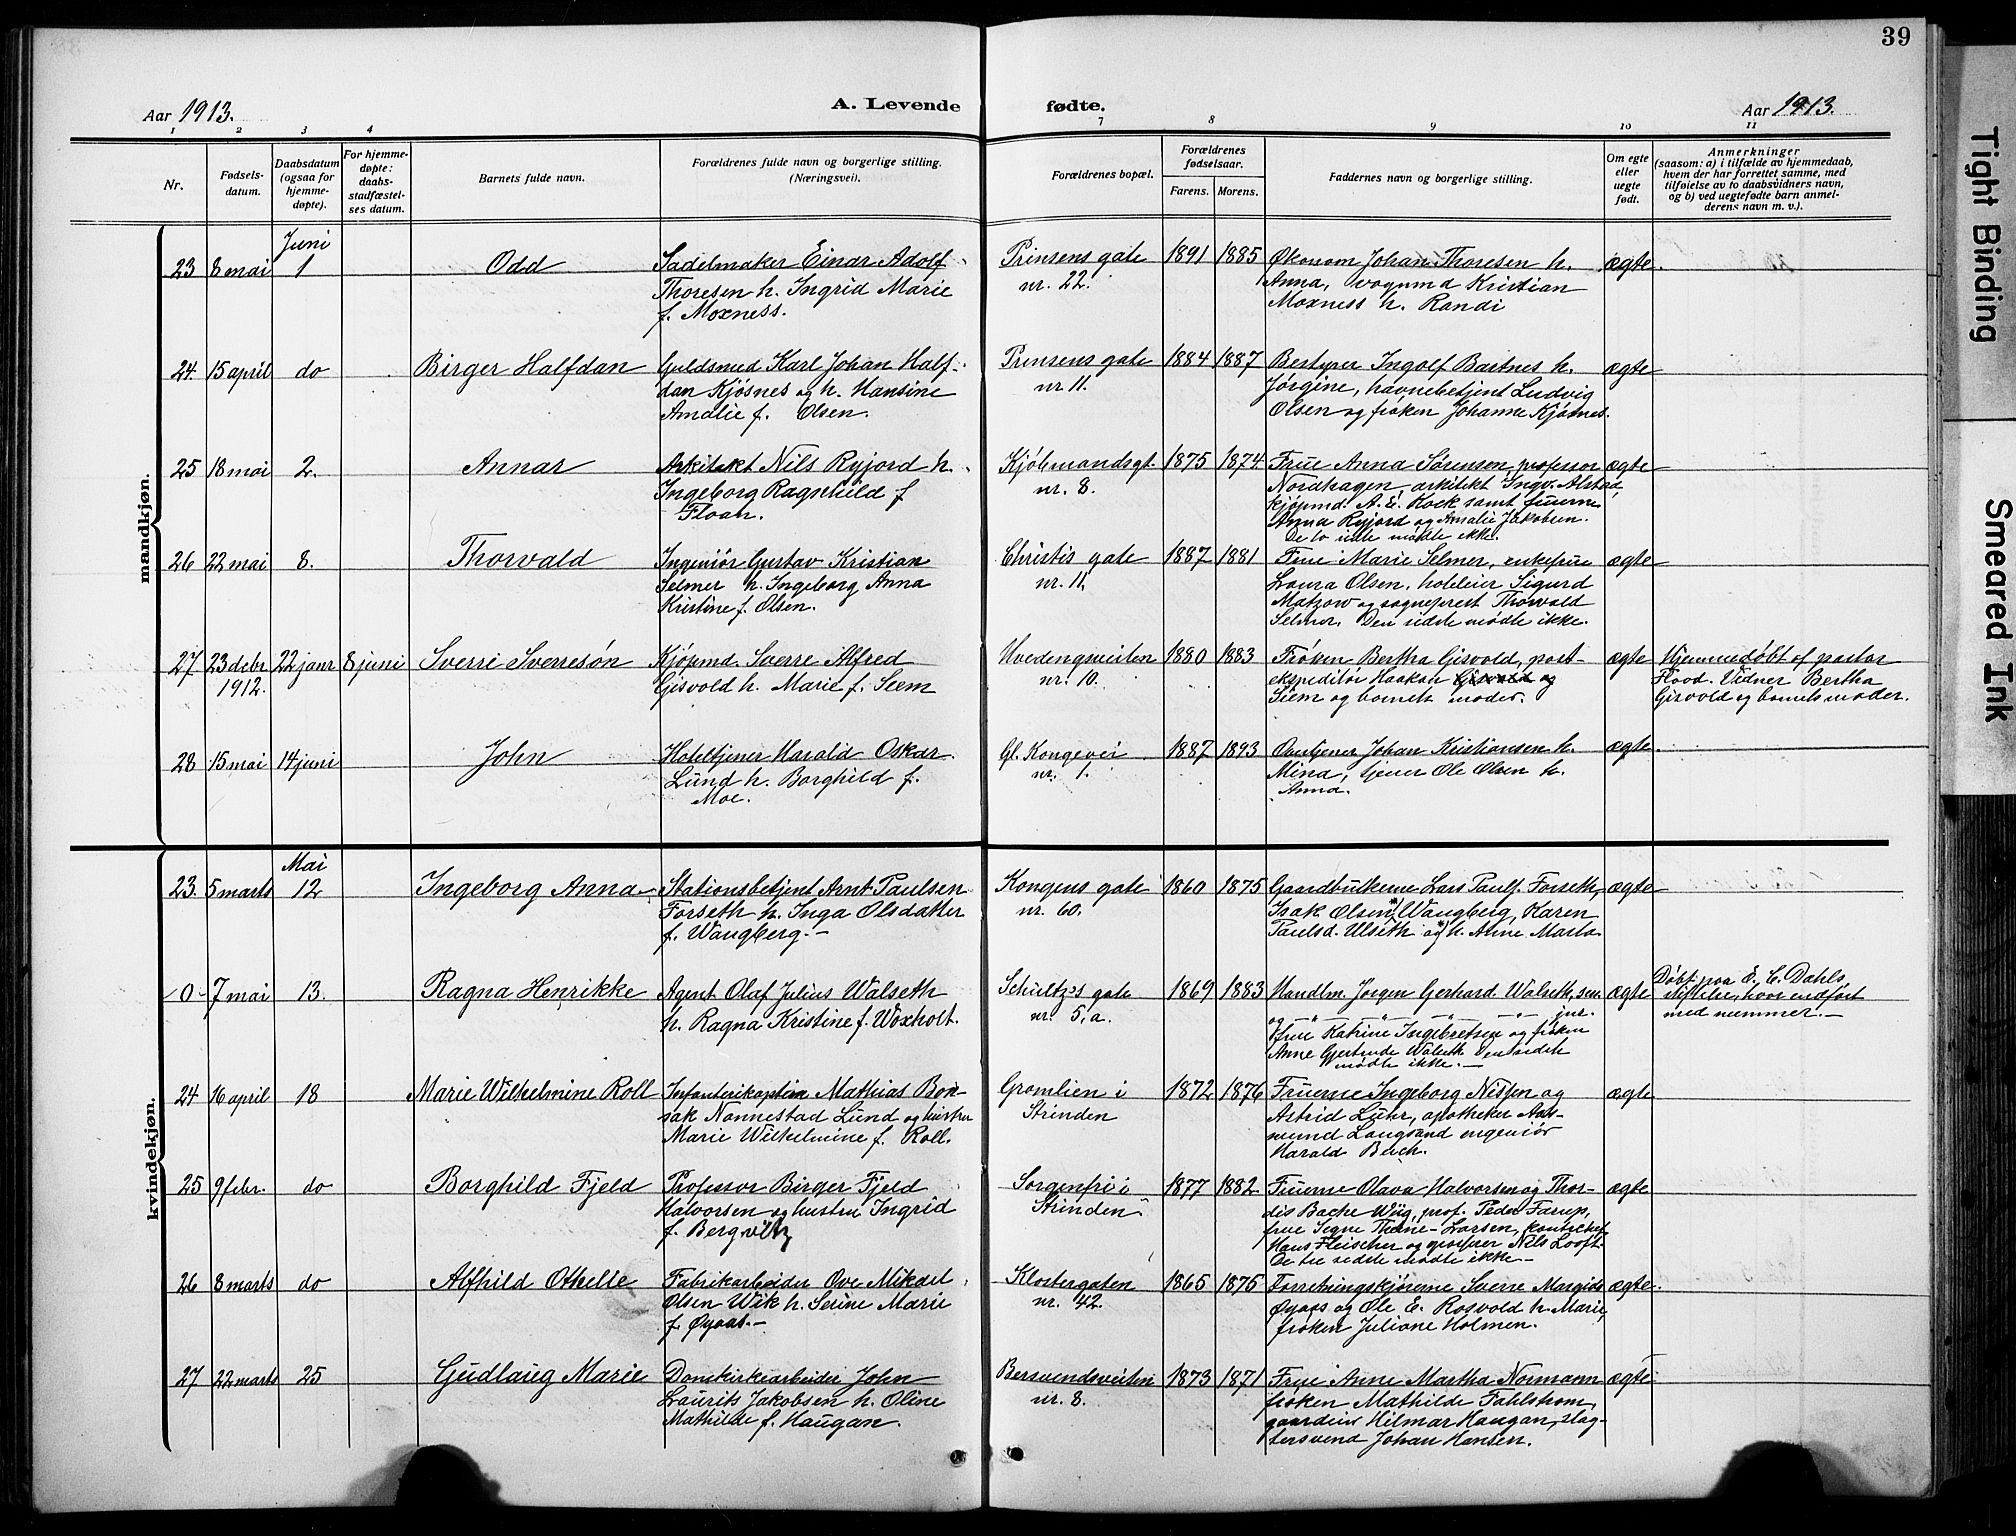 39
Aar 1913.
A. Levende
fødte.
Aar 1913.
1 2 3 4 7 8 9 10 11
Nr.
Fødsels-
datum.
Daabsdatum
(ogsaa for
hjemme-
døpte).
For hjemme-
døpte:
daabs-
stadfæstel-
ses datum.
Barnets fulde navn.
Forældrenes fulde navn og borgerlige stilling.
(Næringsvei).
Forældrenes bopæl.
Forældrenes
fødselsaar.
Farens. Morens.
Faddernes navn og borgerlige stilling.
Om egte
eller
uegte
født.
Anmerkninger
(saasom: a) i tilfælde av hjemmedaab,
hvem der har forrettet samme, med
tilføielse av to daabsvidners navn,
og b) ved uegtefødte barn anmel-
derens navn m. v.).
mandkjøn.
Juni
23 8 mai 1 Odd
Sadelmaker Einar Adolf
Thoresen h. Ingrid Marie
f. Moxness.
Prinsens gate
nr. 22.
1891 1885
Økonom Johan Thoresen h.
Anna, vognmd Kristian
Moxness h. Randi
ægte.
24. 15 april do Birger Halfdan
Guldsmed Karl Johan Half-
dan Kjøsnes og h. Hansine
Amalie f. Olsen.
Prinsens gate
nr 11.
1884 1887
Bestyrer Ingolf Bartnes h.
Jørgine, havnebetjent Ludvig
Olsen og frøken Johanne Kjøsnes.
ægte
25 18 mai 2. Annar
Arkitekt Nils Ryjord h.
Ingeborg Ragnhild f
Floan.
Kjøbmandsgt.
nr. 8.
1875 1874
Frue Anna Sørensen, professor
Nordhagen, arkitekt Ingv. Alstad,
kjøpmd. A. E. Kock samt fruerne
Anna Ryjord og Amalie Jakobsen.
De to sidste mødte ikke.
ægte
26 22 mai 8. Thorvald
Ingeniør Gustav Kristian
Selmer h. Ingeborg Anna
Kristine f. Olsen.
Christis gate
nr. 11.
1887 1881
Frue Marie Selmer, enkefrue
Laura Olsen, hoteleier Sigurd
Matzow og sogneprest Thorvald
Selmer. Den sidste mødte ikke.
ægte
27 23 debr 22 janr 8 juni Sverri Sverresøn
1912.
Kjøpmd. Sverre Alfred
Gisvold h. Marie f. Seem
Hvedengsveiten
nr. 10.
1880 1883
Frøken Bertha Gisvold, post-
ekspeditør Haakon Gisvold og
Siem og barnets moder.
ægte
Hjemmedøbt af pastor
Flood. Vidner Bertha
Gisvold og barnets moder.
28 15 mai 14 juni John
Hoteltjener Harald Oskar
Lund h. Borghild f.
Moe.
Gl. Kongevei
nr. 1.
1887 1893
Overtjener Johan Kristiansen h.
Mina, tjener Ole Olsen h.
Anna.
ægte
kvindekjøn.
Mai
23. 5 marts 12 Ingeborg Anna
Stationsbetjent Arnt Paulsen
Forseth h. Inga Olsdatter
f. Wangberg.-
Kongens gate
nr. 60.
1860 1875
Gaardbrukerne Lars Pauls. Forseth,
Isak Olsen Wangberg, Karen
Paulsd. Ulseth og h. Anne Marta
ægte
0 7 mai 13. Ragna Henrikke
Agent Olaf Julius Walseth
h. Ragna Kristine f. Woxholt.
Schultz's gate
nr. 5, a.
1869 1883
Handlm. Jørgen Gerhard Walseth, sen.
og - " - " - " - jnr.
frue Katrine Ingebretsen og frøken
Anne Gjertrude Walseth. Den sidste
mødte ikke.-
ægte
Døbt paa E. C. Dahls
stiftelse, hvor indført
med nummer.-
24 16 april 18 Marie Wilhelmine Roll
Infanterikaptein Mathias Bon-
sak Nannestad Lund og hustru
Marie Wilhelmine f. Roll.
Gramlien i
Strinden
1872 1876
Fruerne Ingeborg Nissen og
Astrid Lühr, apotheker Aas-
mund Laugsand ingeniør
Harald Bech.
ægte
25 9 febr. do Borghild Fjeld
Professor Birger Fjeld
Halvorsen og hustru Ingrid
f. Bergwitz
Sorgenfri i
Strinden
1877 1882
Fruerne Olava Halvorsen og Thor-
dis Bache Wiig, prof. Peder Farup,
frue Signe Thime-Larsen,
Hans Fleischer og Nils Looft.
De tre sidste mødte ikke-
ægte
26 8 marts do Alfhild Othelie
Fabrikarbeider Ove Mikael
Olsen Wik h. Serine Marie
f. Øyaas.-
Klostergaten
nr. 42.
1865 1875
Forretningskjørerne Sverre Margido
Øyaas og Ole E. Rosvold h. Marie,
frøken Juliane Holmen.
ægte
27 22 marts 25 Gudlaug Marie
Domkirkearbeider John
Laurits Jakobsen h. Oline
Mathilde f. Haugan.
Bersvendsveiten
nr. 8.
1873 1871
Frue Anne Martha Normann
frøken Mathilde Fahlstrøm,
gaardeier Hilmar Haugan, slag-
tersvend Johan Hansen.
ægte
Tight Binding
Smeared Ink